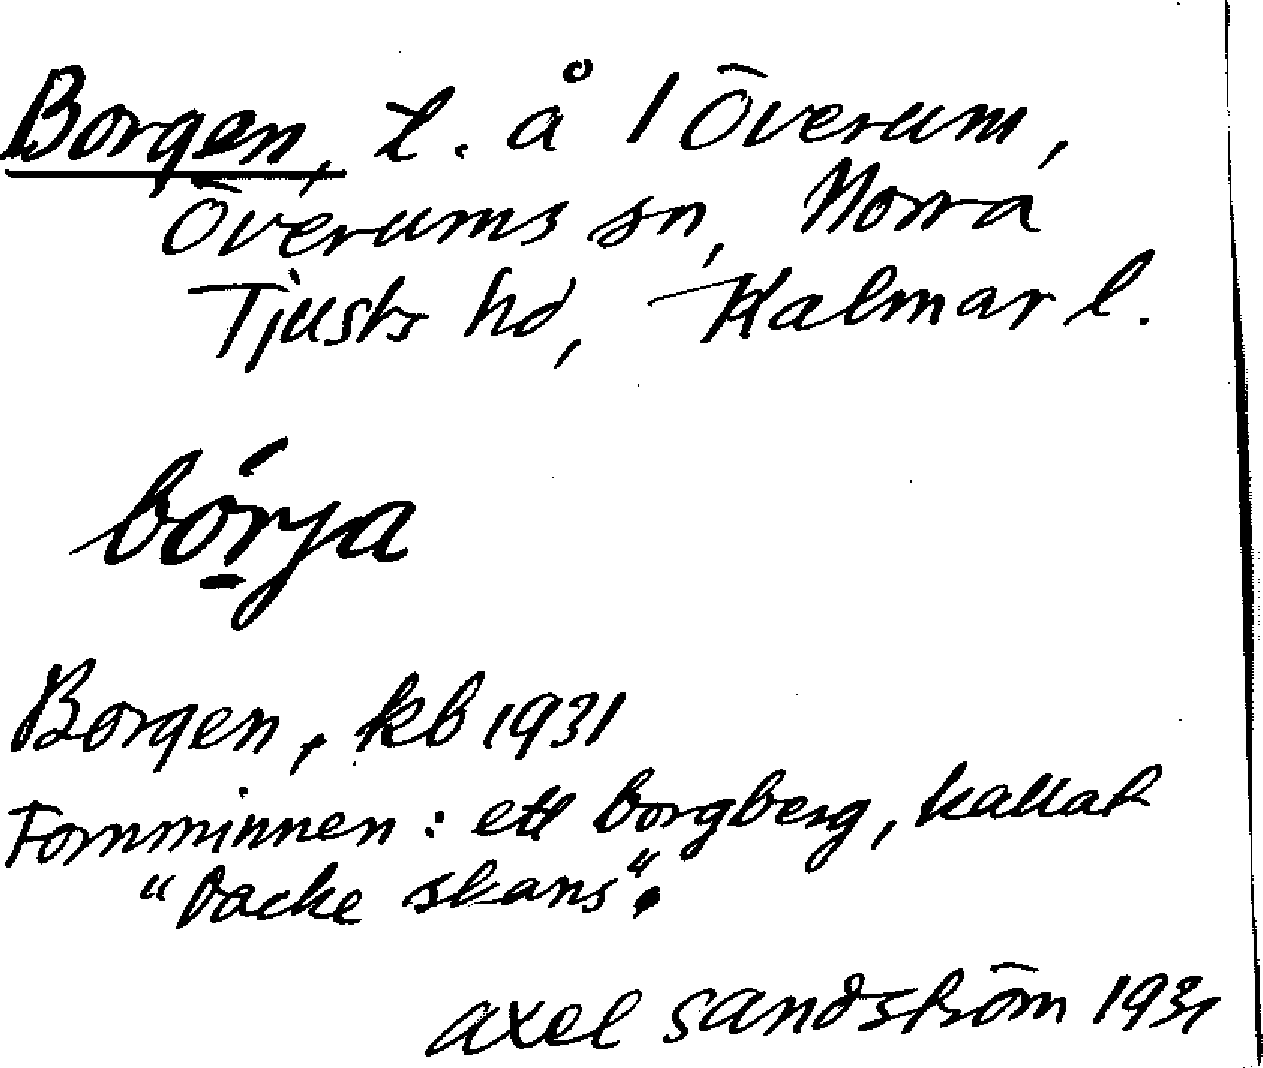 Borgen, t. å 1 Överum,
Överums sn, Norra
Tjusts hd, Kalmar l.
börja
Borgen, kb 1931
Fornminnen: ett borgberg, kallat
"Dacke skans".
Axel Sandström 1931